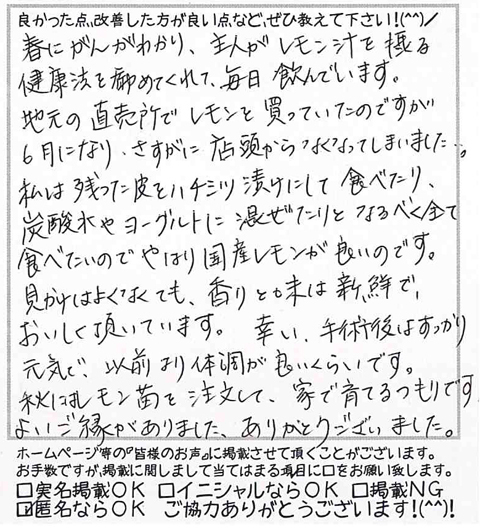 良かった点、改善した方が良い点など、ぜひ教えて下さい!(^^)/
春にがんがわかり、主人がレモン汁を摂る
健康法を勧めてくれて、毎日飲んでいます。
地元の直売所でレモンを買っていたのですが
6月になり、さすがに店頭からなくなってしまいました…。
私は残った皮をハチミツ漬けにして食べたり、
炭酸水やヨーグルトに混ぜたりとなるべく全て
食べたいのでやはり国産レモンが良いのです。
見かけはよくなくても、香りと味は新鮮で、
おいしく頂いています。 幸い、手術後はすっかり
元気で、以前より体調が良いくらいです。
秋にはレモン苗を注文して、家で育てるつもりです
よいご縁がありました、ありがとうございました。
ホームページ等の『皆様のお声』に掲載させて頂くことがございます。
お手数ですが、掲載に関しまして当てはまる項目に☑をお願い致します。
□実名掲載OK □イニシャルならOK □掲載NG
☑匿名ならOK ご協力ありがとうございます!(^^)!